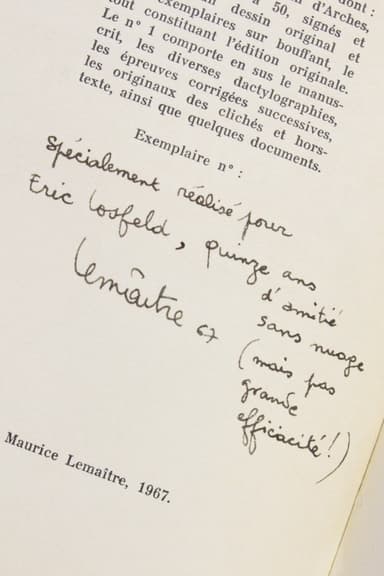 dont :
d'Arches,
à 50, signés et
dessin original et
tout constituant l'édition originale.
exemplaires sur bouffant, le
Le n° 1 comporte en sus le manus-
crit, les diverses dactylographies,
les épreuves corrigées successives,
les originaux des clichés et hors-
texte, ainsi que quelques documents.
Exemplaire n° :
spécialement réalisé pour
Eric Losfeld, quinze ans
d'amitié
sans nuage
(mais pas
grande
efficacité !)
Lemaître 67
Maurice Lemaître, 1967.